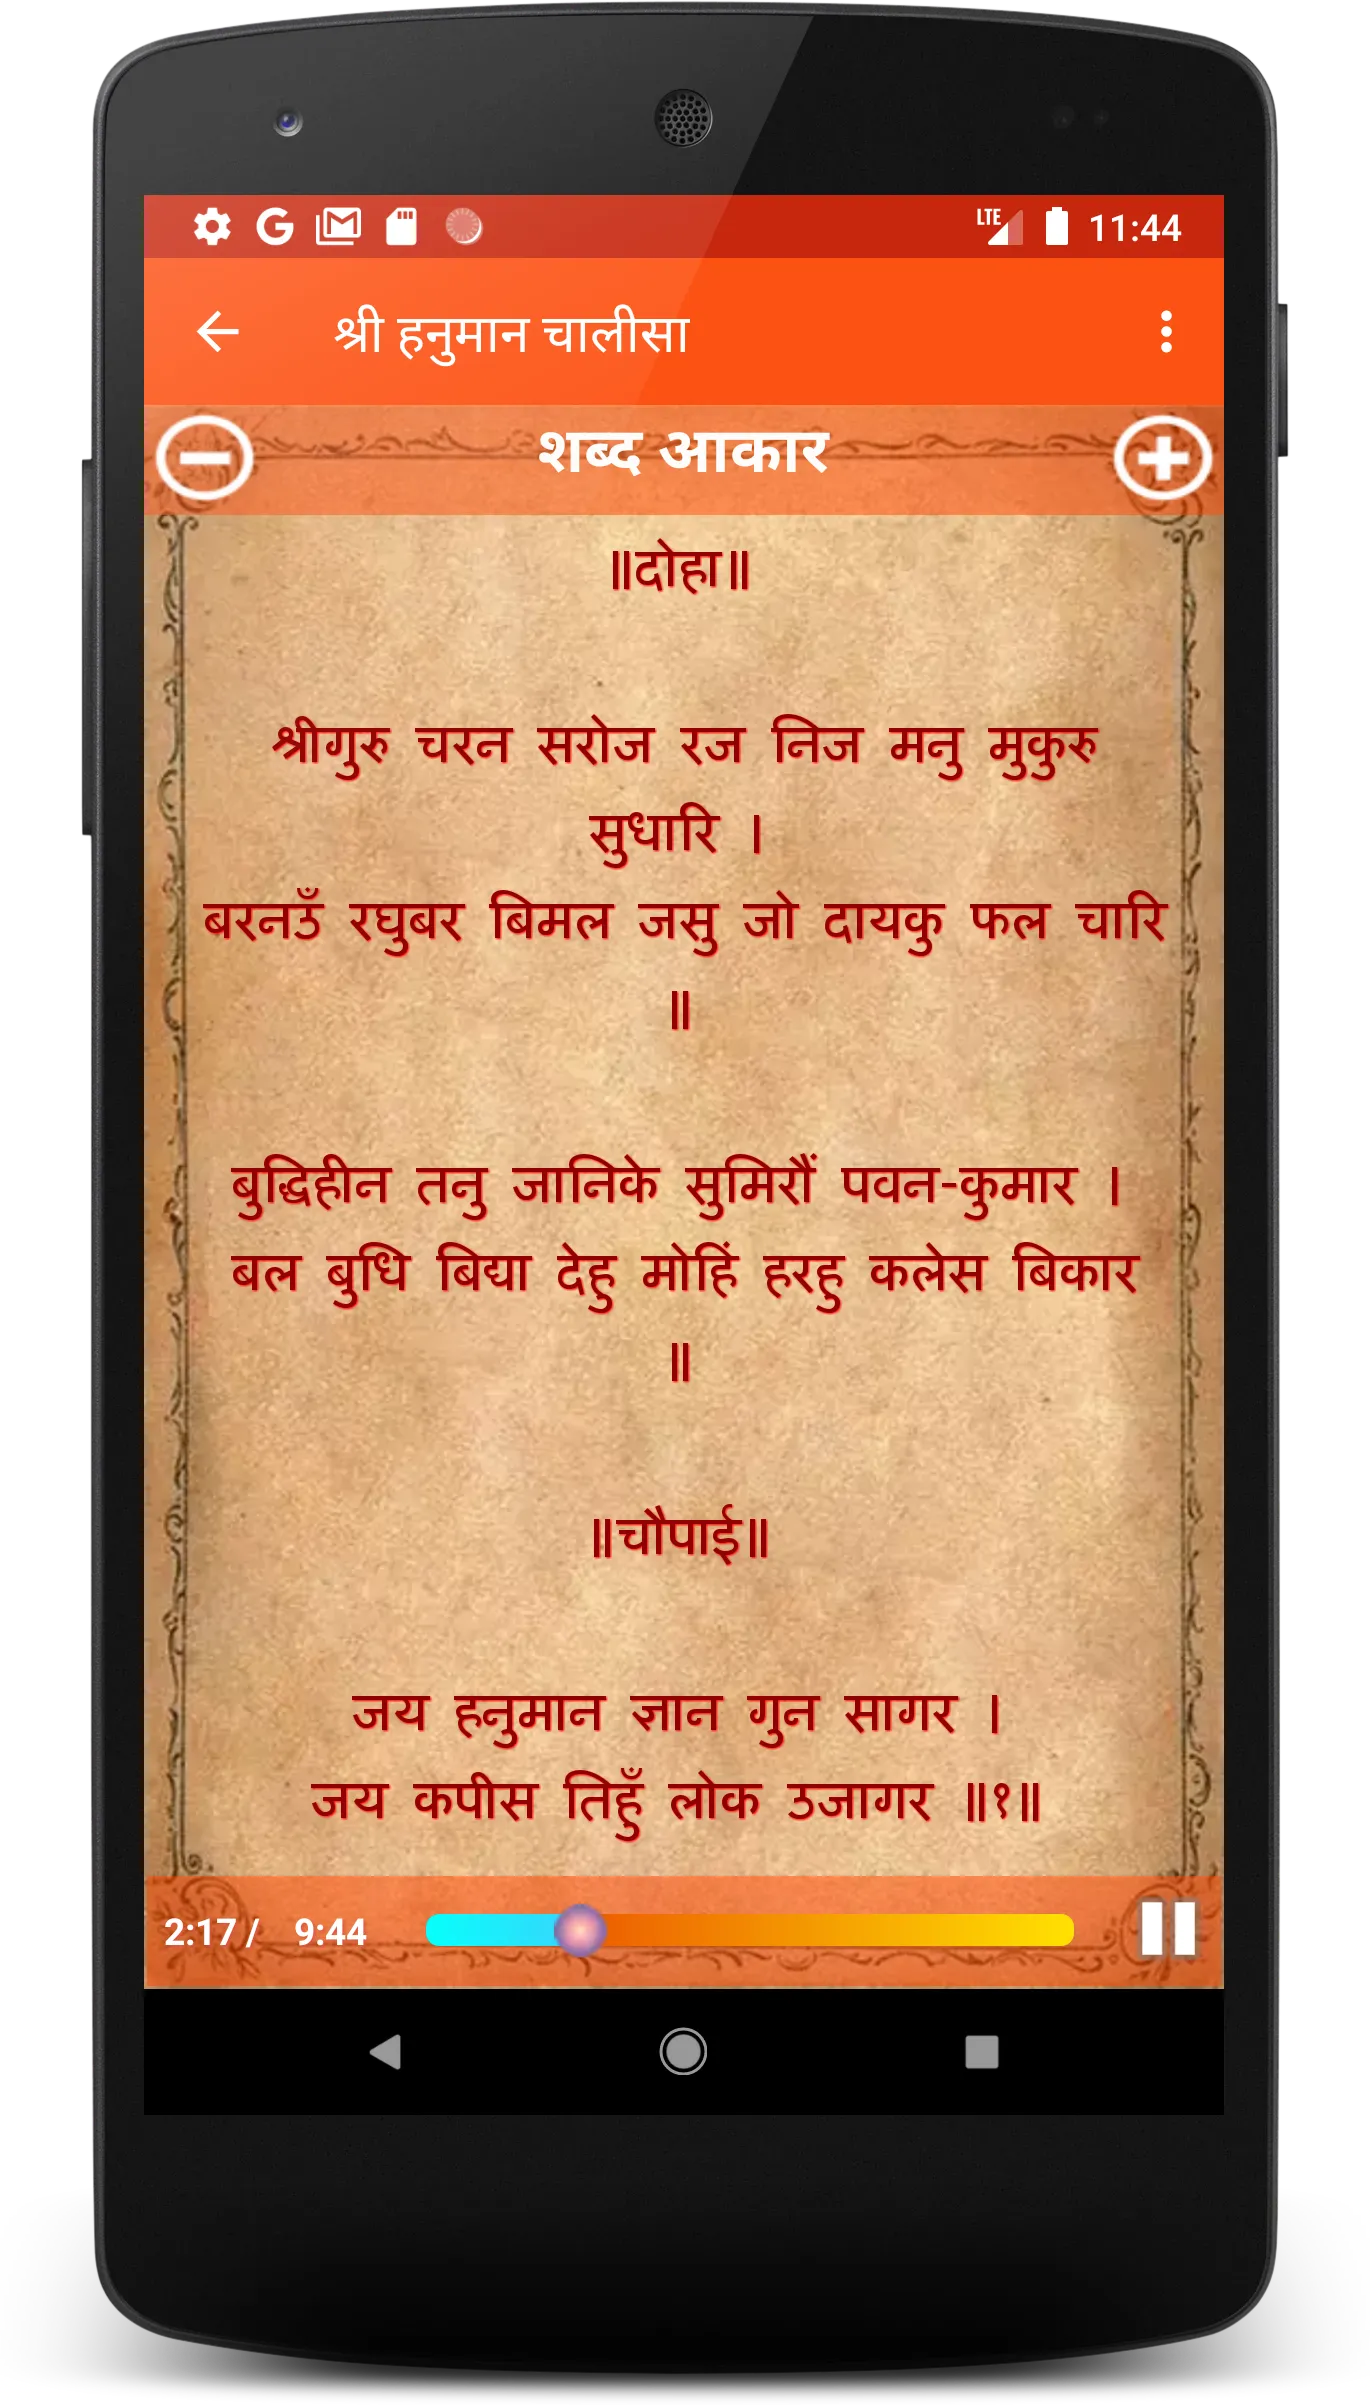 LTE 11:44
श्री हनुमान चालीसा
शब्द आकार
॥दोहा॥
श्रीगुरु चरन सरोज रज निज मनु मुकुरु
सुधारि ।
बरनउँ रघुबर बिमल जसु जो दायकु फल चारि
॥
बुद्धिहीन तनु जानिके सुमिरौं पवन-कुमार ।
बल बुधि बिद्या देहु मोहिं हरहु कलेस बिकार
॥
॥चौपाई॥
जय हनुमान ज्ञान गुन सागर ।
जय कपीस तिहुँ लोक उजागर ॥१॥
2:17 / 9:44